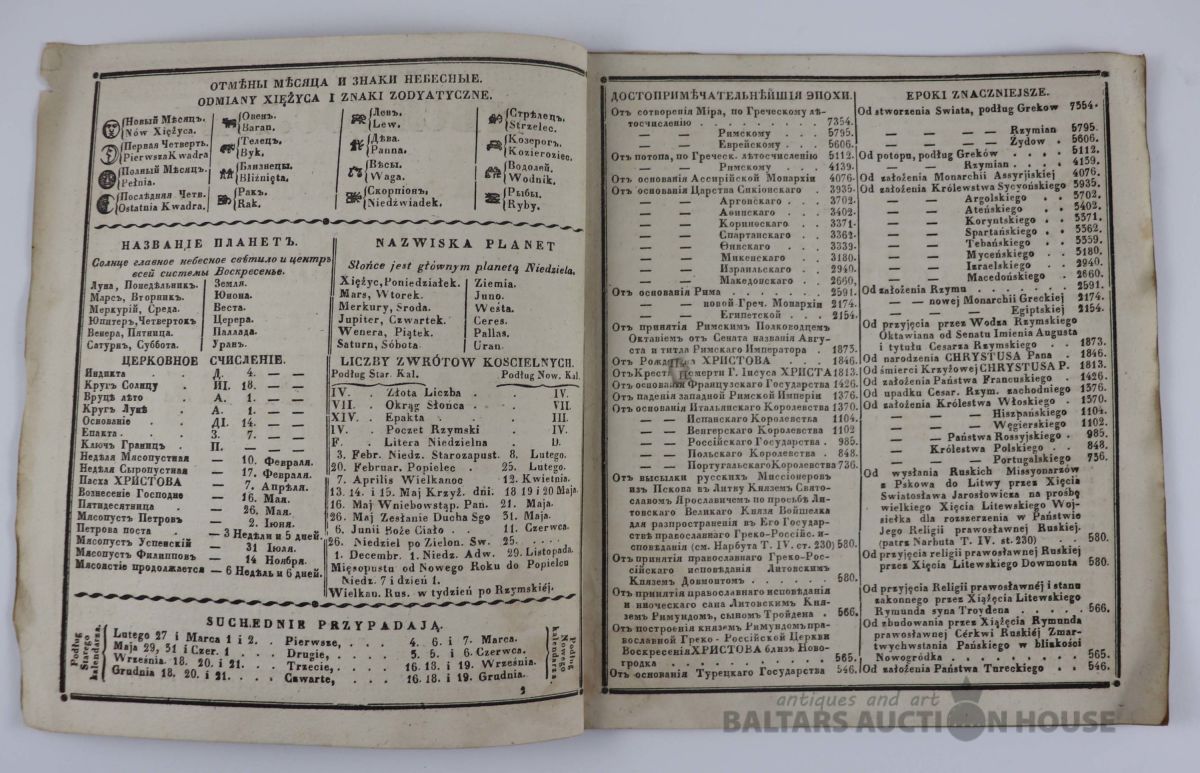 ОТМѢНЫ МѢСЯЦА И ЗНАКИ НЕБЕСНЫЕ.
ODMIANY XIĘŻYCA I ZNAKI ZODYATYCZNE.
Новый Мѣсяцъ.
Nów Xiężyca.
Первая Четверть.
Pierwsza Kwadra
Полный Мѣсяцъ.
Pełnia.
Послѣдняя Четв.
Ostatnia Kwadra.
Овенъ.
Baran.
Телецъ.
Byk.
Близнецы
Bliźnięta.
Ракъ.
Rak.
Левъ.
Lew.
Дѣва.
Panna.
Вѣсы.
Waga.
Скорпіонъ,
Niedźwiadek.
Стрѣлецъ.
Strzelec.
Козерогъ.
Kozierożec.
Водолей.
Wodnik.
Рыбы.
Ryby.
НАЗВАНІЕ ПЛАНЕТЪ.
Солнце главное небесное свѣтило и центръ
всей системы Воскресенье.
Луна, Понедѣльникъ. Земля.
Марсъ, Вторникъ. Юнона.
Меркурій, Среда. Веста.
Юпитеръ, Четвертокъ Церера.
Венера, Пятница. Паллада.
Сатурнъ, Суббота. Уранъ.
NAZWISKA PLANET
Słońce jest głównym planetą Niedziela.
Xiężyc, Poniedziałek. Ziemia.
Mars, Wtorek. Juno.
Merkury, Sroda. Westa.
Jupiter, Czwartek. Ceres.
Wenera, Piątek. Pallas.
Saturn, Sóbota. Uran.
ЦЕРКОВНОЕ СЧИСЛЕНІЕ.
Индикта . Д. 4. — —
Кругъ Солнцу . ИІ. 18. — —
Вруцѣ лѣто . А. 1. — —
Кругъ Лунѣ . А. 1. — —
Основаніе . ДІ. 14. — —
Епакта . З. 7. — —
Ключъ Границъ . П. — — —
Недѣля Мясопустная — 10. Февраля.
Недѣля Сыропустная — 17. Февраля.
Пасха ХРИСТОВА — 7. Апрѣля.
Вознесеніе Господне — 16. Мая.
Пятидесятница — 26. Мая.
Мясопустъ Петровъ — 2. Іюня.
Петрова поста — 3 Недѣли и 5 дней.
Мясопустъ Успенскій — 31 Іюля.
Мясопустъ Филипповъ — 14 Ноября.
Мясоястіе продолжается — 6 Недѣль и 6 дней.
LICZBY ZWRÓTOW KOSCIELNYCH.
Podług Star. Kal. Podług Now. Kal.
IV. Złota Liczba . IV.
VII. Okrąg Słońca . VII.
XIV. Epakta . III.
IV. Poczet Rzymski . IV.
F. Litera Niedzielna . D.
3. Febr. Niedz. Starozapust. 8. Lutego.
20. Februar. Popielec . 25. Lutego.
7. Aprilis Wielkanoc . 12. Kwietnia.
13. 14. i 15. Maj Krzyż. dni. 18 19 i 20 Maja.
16. Maj Wniebowstąp. Pan. 21. Maja.
26. Maj Zesłanie Ducha Sgo 31. Maja.
6. Junii Boże Ciało . 11. Czerwca.
26. Niedziel po Zielon. Sw. 25. . . .
1. Decembr. 1. Niedz. Adw. 29. Listopada.
Mięsopustu od Nowego Roku do Popielcu
Niedz. 7 i dzień 1.
Wielkan. Rus. w tydzień po Rzymskiéj.
SUCHEDNIE PRZYPADAJĄ.
Podług Starego kalendarza
Lutego 27 i Marca 1 i 2. . Pierwsze, . . . 4. 6. i 7. Marca.
Maja 29, 31 i Czer. 1 . . . Drugie, . . . 3. 5. i 6 Czerwca.
Września. 18. 20. i 21. . . Trzecie, . . . 16. 18. i 19. Września.
Grudnia 18. 20. i 21. . . . Czwarte, . . . 16. 18. i 19. Grudnia.
Podług Nowego kalendarza
2
ДОСТОПРИМѢЧАТЕЛЬНѢЙШІЯ ЭПОХИ.
Отъ сотворенія Міра, по Греческому лѣ-
тосчисленію . . . . . . 7354.
— — Римскому . . . 5795.
— — Еврейскому . . 5606.
Отъ потопа, по Греческ. лѣтосчисленію 5112.
— — Римскому . . . 4139.
Отъ основанія Ассирійской Монархіи 4076.
Отъ основанія Царства Сикіонскаго . 3935.
— — Аргонскаго . . 3702.
— — Аѳинскаго . . . 3402.
— — Коринѳскаго . . 3371.
— — Спартанскаго . . 3361.
— — Ѳивскаго . . . 3339.
— — Микенскаго . . 3180.
— — Израильскаго . . 2940.
— — Македонскаго . . 2660.
Отъ основанія Рима . . . . . . 2591.
— — новой Греч. Монархіи 2174.
— — Египетской . . 2154.
Отъ принятія Римскимъ Полководцемъ
Октавіемъ отъ Сената названія Авгу-
ста и титла Римскаго Императора . 1873.
Отъ Рождества ХРИСТОВА . . . 1846.
Отъ Крестной смерти Г. Іисуса ХРИСТА 1813.
Отъ основанія Французскаго Государства 1426.
Отъ паденія западной Римской Имперіи 1376.
Отъ основанія Итальянскаго Королевства 1370.
— — Испанскаго Королевства 1104.
— — Венгерскаго Королевства 1102
— — Россійскаго Государства . 985.
— — Польскаго Королевства . 848.
— — Португальскаго Королевства 736.
Отъ высылки русскихъ Миссіонеровъ
изъ Пскова въ Литву Княземъ Свято-
славомъ Ярославичемъ по просьбѣ Ли-
товскаго Великаго Князя Войшелка
для разпространенія въ Его Государ-
ствѣ православнаго Греко-Россійс. и-
сповѣданія (см. Нарбута Т. IV. ст. 230) 580.
Отъ принятія православнаго Греко-Рос-
сійскаго исповѣданія Литовскимъ
Княземъ Довмонтомъ . . . . . . 580.
Отъ принятія православнаго исповѣданія
и иноческаго сана Литовскимъ Кня-
земъ Римундомъ, сыномъ Тройдена . 566.
Отъ построенія княземъ Римундомъ пра-
вославной Греко-Россійской Церкви
Воскресенія ХРИСТОВА близъ Ново-
гродка . . . . . . . . 565.
Отъ основанія Турецкаго Государства 546.
EPOKI ZNACZNIEJSZE.
Od stworzenia Swiata, podług Grekow 7554.
— — — — Rzymian 5795.
— — — — Żydow . 5606.
Od potopu, podług Greków . . . . 5112.
— — — Rzymian . . 4139.
Od założenia Monarchii Assyrjiskiej 4076.
Od założenia Królewstwa Sycyońskiego 5935.
— — Argolskiego . . 5702.
— — Ateńskiego . . 5402.
— — Koryntskiego . . 5571.
— — Spartańskiego . . 5562.
— — Tebańskiego . . 5559.
— — Myceńskiego . . 5180.
— — Izraelskiego . . 2940.
— — Macedońskiego . . 2660.
Od założenia Rzymu . . . . . 2591.
— — nowej Monarchii Greckiej 2174.
— — Egiptskiej 2154.
Od przyjęcia przez Wodza Rzymskiego
Oktawiana od Senatu Imienia Augusta
i tytułu Cesarza Rzymskiego . . . 1873.
Od narodzenia CHRYSTUSA Pana . 1846.
Od śmierci Krzyżowej CHRYSTUSA P. 1813.
Od założenia Państwa Francuskiego . 1426.
Od upadku Cesar. Rzym. zachodniego 1376.
Od założenia Królestwa Włoskiego . 1370.
— — Hiszpańskiego 1104.
— — Węgierskiego 1102.
— — Państwa Rossyjskiego . 985.
— Królestwa Polskiego . . 848.
— — Portugalskiego 736.
Od wysłania Ruskich Missyonarzów
z Pskowa do Litwy przez Xięcia
Swiatosława Jarosłowicza na prośbę
wielkiego Xięcia Litewskiego Woj-
siełka dla rozszerzenia w Państwie
Jego Religii prawosławnej Ruskiej.
(patrz Narbuta T. IV. st. 230) . . 580.
Od przyjęcia religii prawosławnej Ruskiej
przez Xięcia Litewskiego Dowmonta 580.
Od przyjęcia Religii prawosławnéj i stanu
zakonnego przez Xiążęcia Litewskiego
Rymunda syna Troydena . . . . 566.
Od zbudowania przez Xiążęcia Rymunda
prawosławnej Cérkwi Ruskiéj Zmar-
twychwstania Pańskiego w bliskości
Nowogródka . . . . . . 565.
Od założenia Państwa Tureckiego . . 546.
antiques and art
BALTARS AUCTION HOUSE